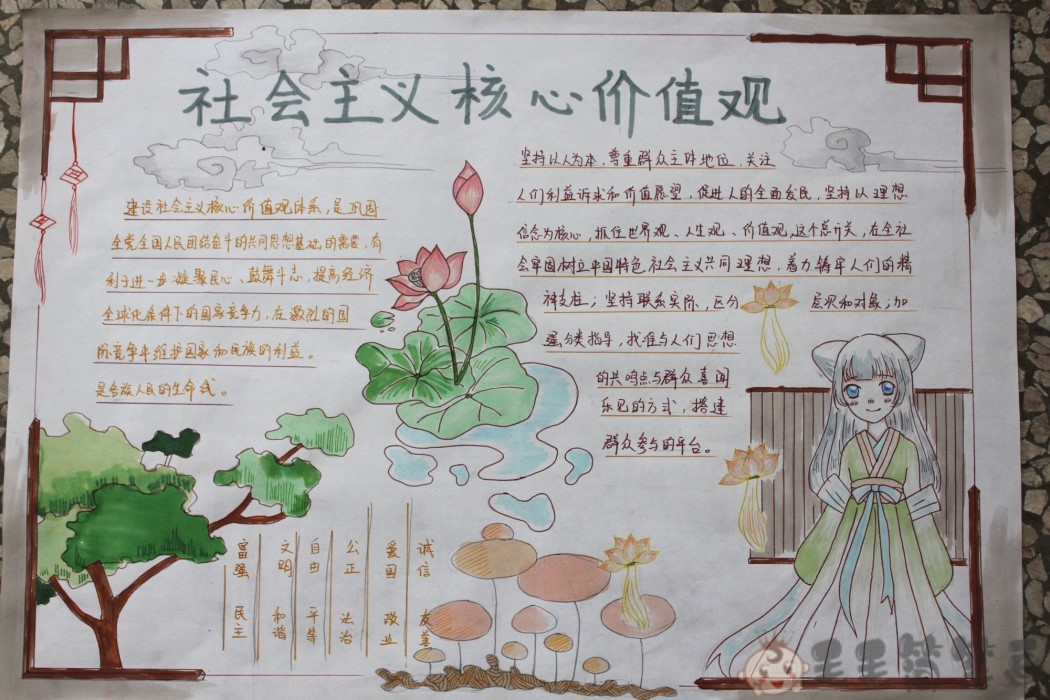 社会主义核心价值观
建设社会主义核心价值观体系,是巩固
全党全国人民团结奋斗的共同思想基础的需要,有
利于进一步凝聚民心、鼓舞斗志,提高经济
全球化条件下的国家竞争力,在激烈的国
际竞争中维护国家和民族的利益。
是各族人民的生命线。
坚持以人为本,尊重群众主体地位,关注
人们利益诉求和价值愿望,促进人的全面发展,坚持以理想
信念为核心,抓住世界观、人生观、价值观,这个总开关,在全社
会牢固树立中国特色社会主义共同理想,着力铸牢人们的精
神支柱;坚持联系实际,区分 层次和对象;加
强分类指导,找准与人们思想
的共鸣点与群众喜闻
乐见的方式,搭建
群众参与的平台。
富强 民主
文明 和谐
自由 平等
公正 法治
爱国 敬业
诚信 友善